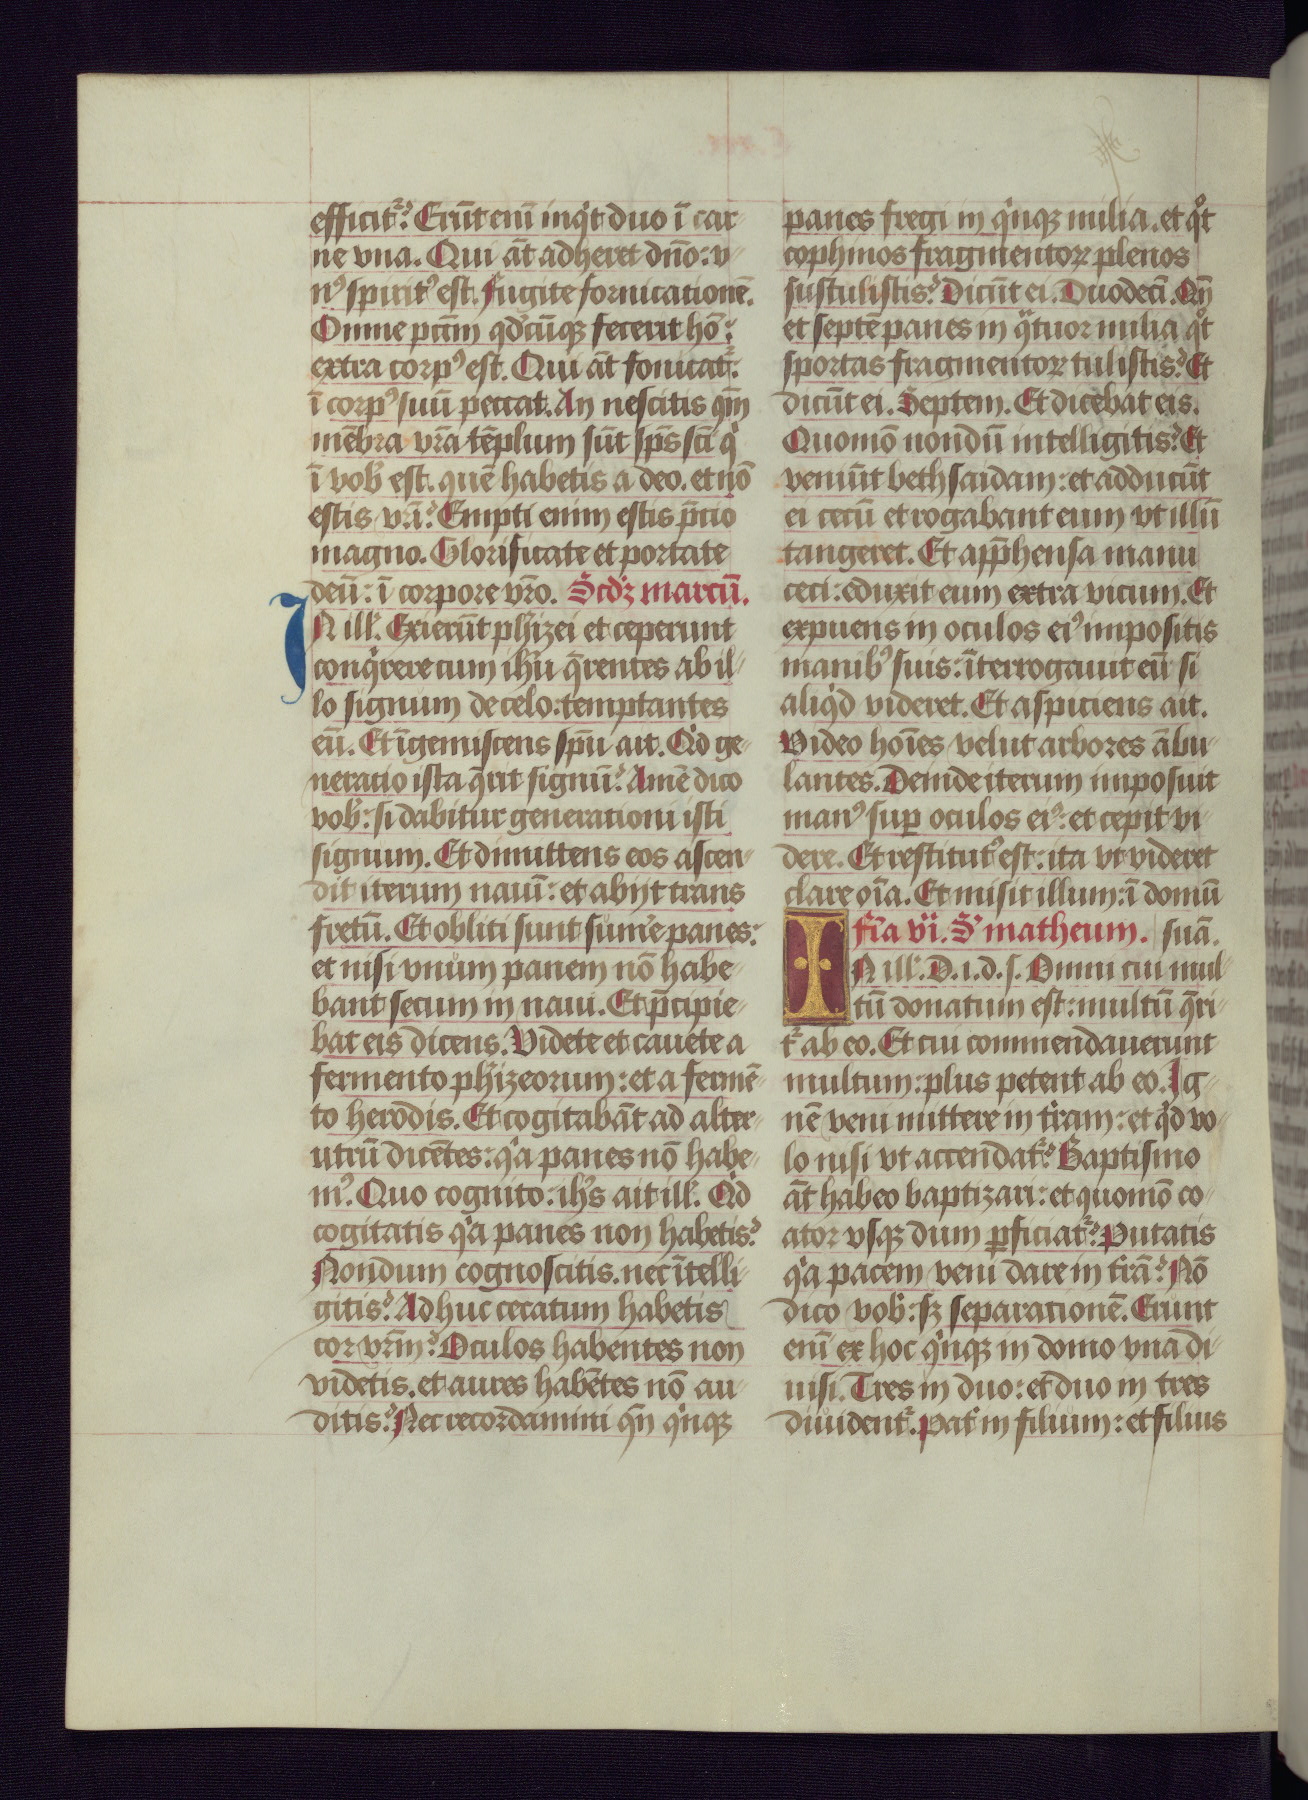 efficit᷑? Erūt enī inq̇t duo ī car-
ne vna. Qui āt adheret dn̄o: v-
nꝰ spiritꝰ est. Fugite fornicationē.
Omne pctm̄ qd̓cūqꝫ fecerit hō:
extra corpꝰ est. Qui āt fonicat᷑:
ī corpꝰ suū peccat. An nescitis qm̄
mēbra vr̄a tēplum sūt sp̄s sc̄i q̇
ī vob̓ est. quē habetis a deo. et nō
estis vr̄i? Empti enim estis p̄cio
magno. Glorificate et portate
deū: ī corpore vr̄o. Scd̓ꝫ marcū.
IN ill̓. Exierūt ph̓izei et ceperunt
conq̇rere cum ih̓u q̄rentes ab il-
lo signum de celo: temptantes
eū. Et īgemiscens sp̄u ait. Qd̓ ge-
neratio ista q̄rit signū? Amē dico
vob̓: si dabitur generationi isti
signum. Et dimittens eos ascen-
dit iterum nauī: et abijt trans
fretū. Et obliti sunt sum̓e panes:
et nisi vnum panem nō habe-
bant secum in naui. Et p̄cipie-
bat eis dicens. Videte et cauete a
fermento ph̓izeorum: et a fermē-
to herodis. Et cogitabāt ad alter-
utrū dicētes: q̇a panes nō habe-
mꝰ. Quo cognito: ih̓s ait ill̓. Qd̓
cogitatis q̇a panes non habetis?
Nondum cognoscitis. nec ītelli-
gitis? Adhuc cecatum habetis
cor vr̄m? Oculos habentes non
videtis. et aures habētes nō au-
ditis? Nec recordamini qn̄ q̇nqꝫ
panes fregi in q̇nqꝫ milia. et qͦt
cophinos fragmentoꝝ plenos
sustulistis? Dicūt ei. Duodecī. Qn̄
et septē panes in qͣtuor milia qͦt
sportas fragmentoꝝ tulistis? Et
dicūt ei. Septem. Et dicebat eis.
Quomō nondū intelligitis? Et
veniūt bethsaidam: et adducūt
ei cecū et rogabant eum vt illū
tangeret. Et app̄hensa manu
ceci: eduxit eum extra vicum. Et
expuens in oculos eiꝰ impositis
manibꝰ suis: īterrogauit eū si
aliq̇d videret. Et aspiciens ait.
Video hoīes velut arbores ābu-
lantes. Deinde iterum imposuit
manꝰ suꝑ oculos eiꝰ: et cepit vi-
dere. Et restitutꝰ est: ita vt videret
clare oīa. Et misit illum: ī domū
fr̄ia vi. S̓ matheum. suā.
IN ill̓. D. i. d. s. Omni cui mul-
tū donatum est: multū q̄ri-
t᷑ ab eo. Et cui commendauerunt
multum: plus petent ab eo. Ig-
nē veni mittere in t̓ram: et q̇d vo-
lo nisi vt accendat᷑? Baptismo
āt habeo baptizari: et quomō co-
ator vsqꝫ dum ꝑficiat᷑? Putatis
q̇a pacem veni dare in t̓rā? Nō
dico vob̓: sꝫ separationē. Erunt
enī ex hoc q̇nqꝫ in domo vna di-
uisi. Tres in duo: et duo in tres
diuident᷑. Pat̓ in filium: et filius